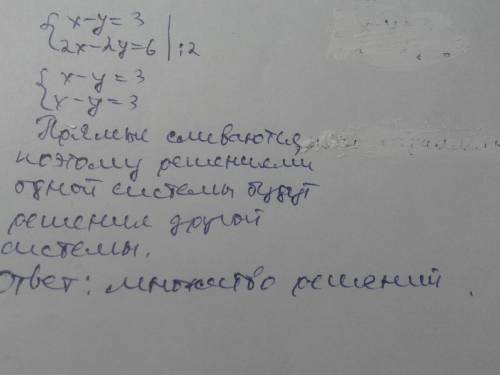 {x-y=3
{2x-2y=6 | :2
{x-y=3
{x-y=3
Прямые сливаются,
поэтому решениями
одной системы будут
решения другой
системы.
Ответ: множество решений.